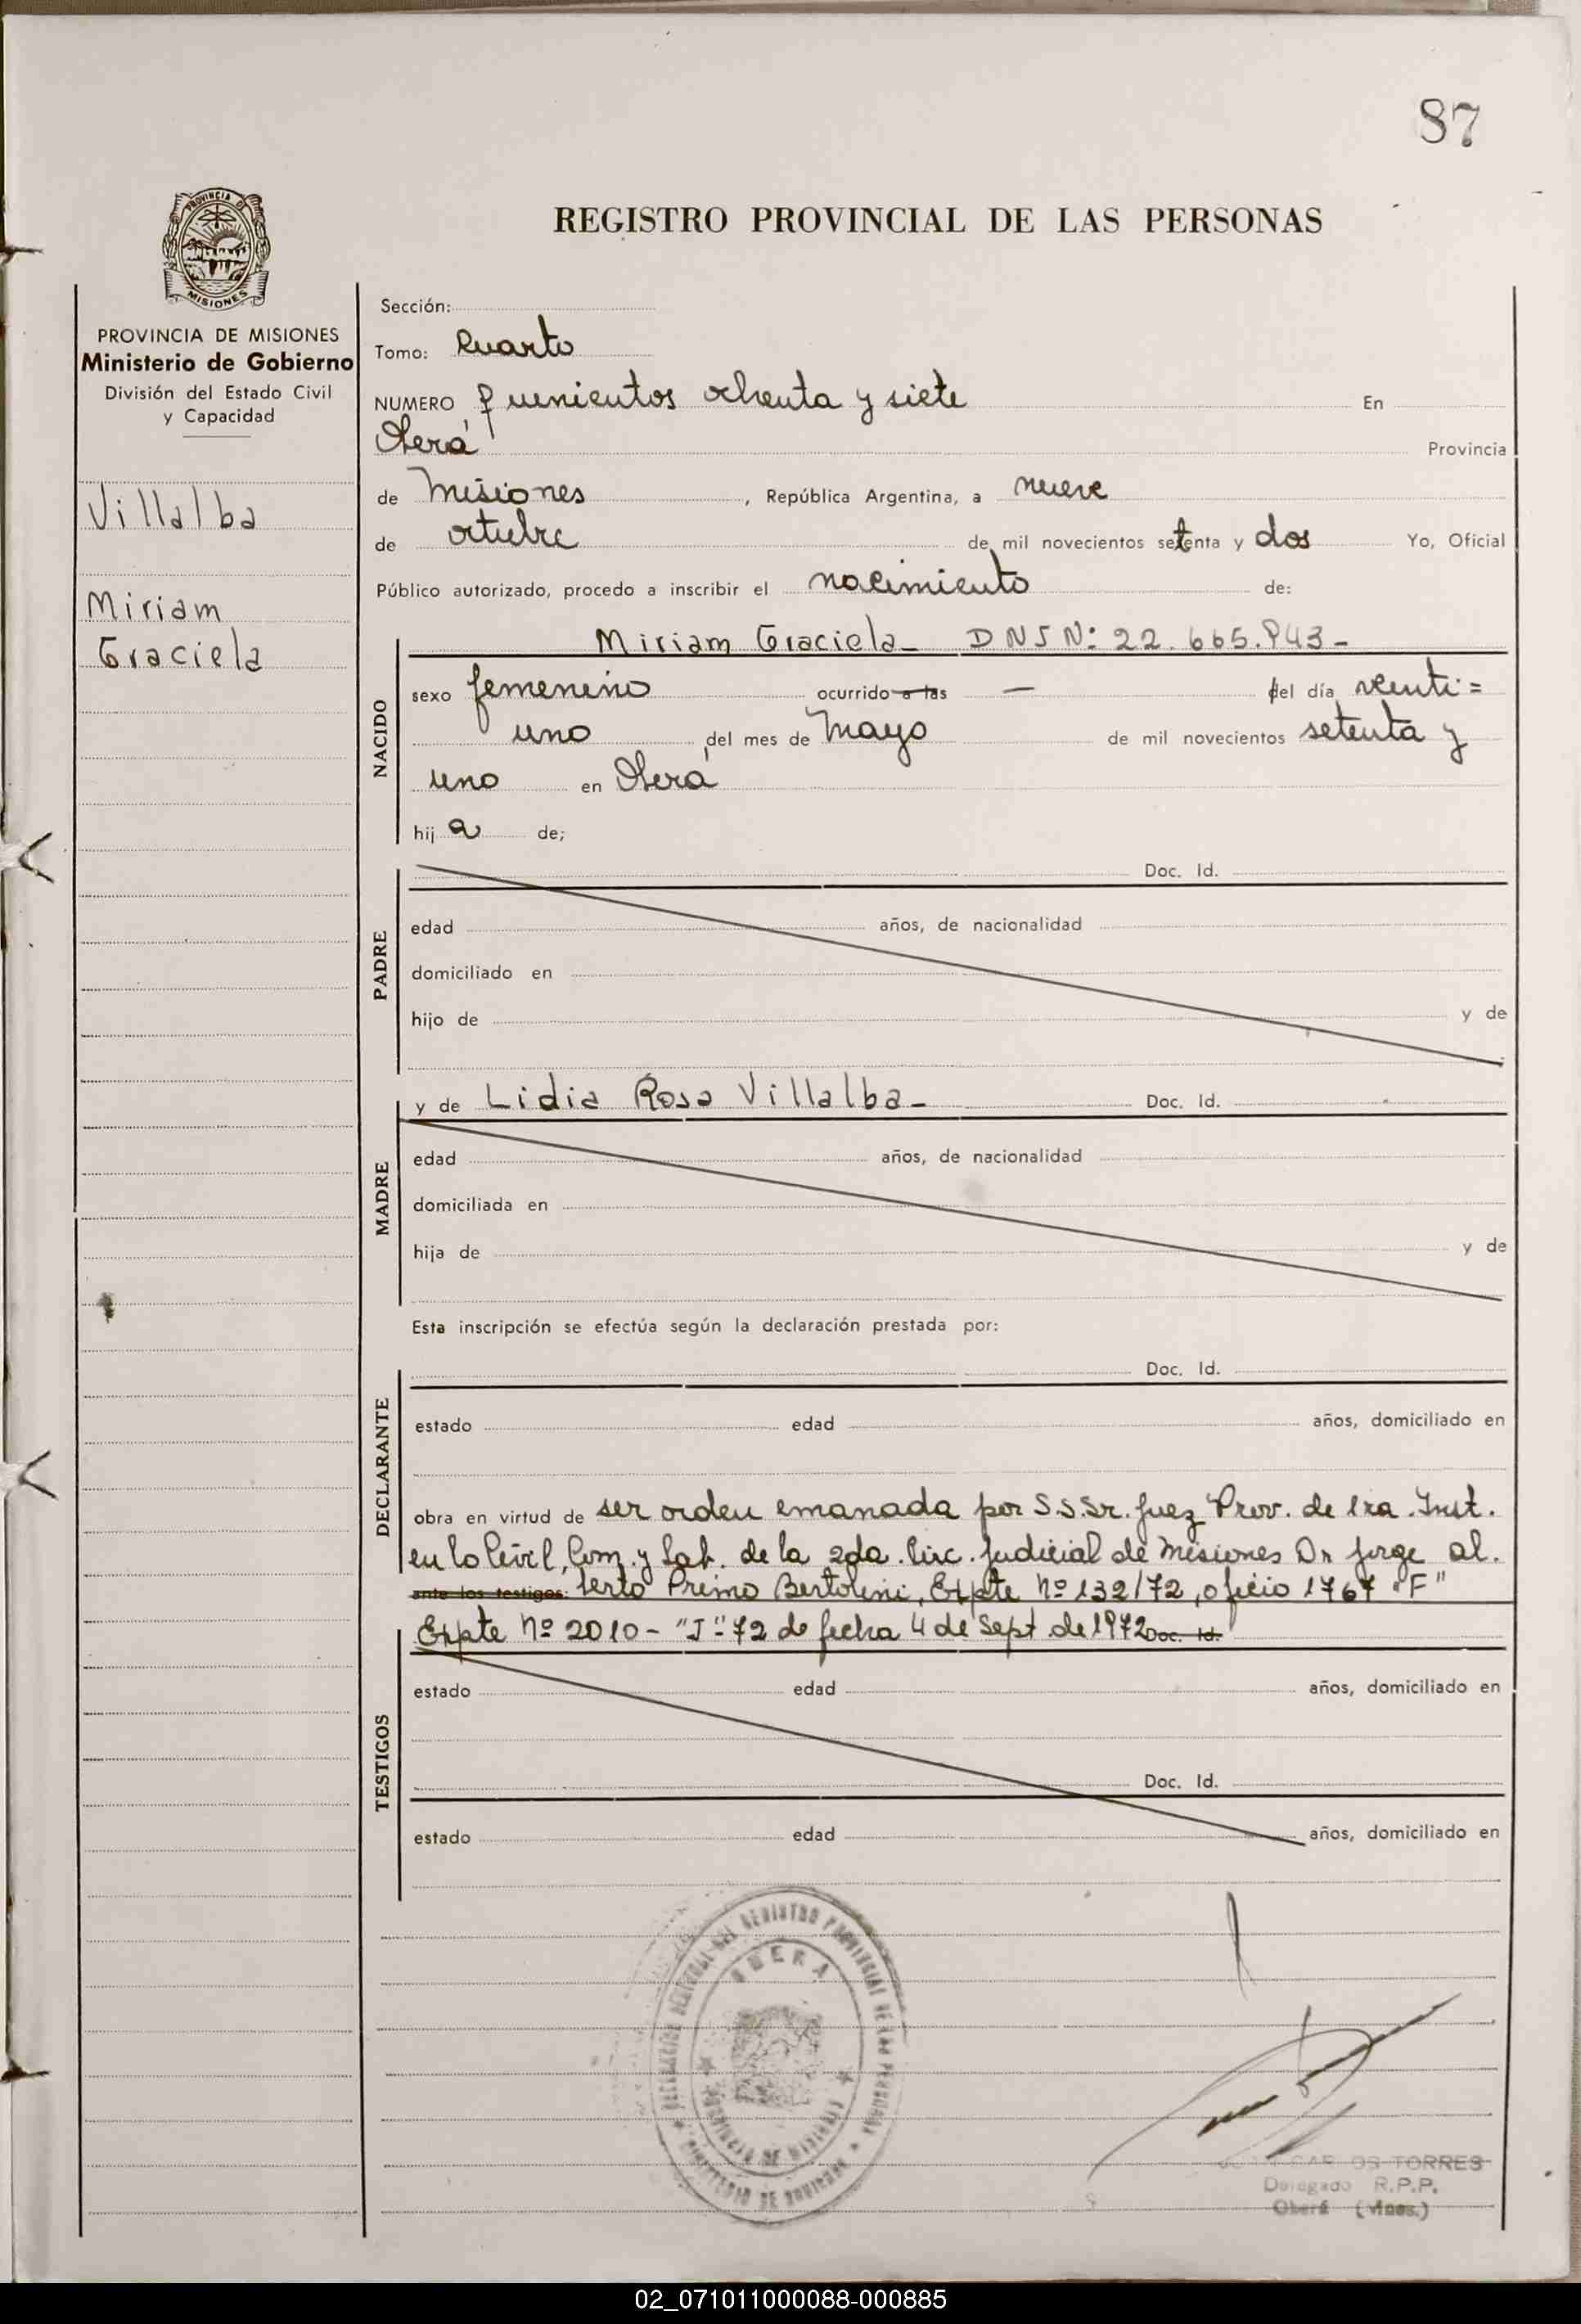 87
REGISTRO PROVINCIAL DE LAS PERSONAS
PROVINCIA DE
MISIONES
PROVINCIA DE MISIONES
Ministerio de Gobierno
División del Estado Civil
y Capacidad
Villalba
Miriam
Graciela
Sección:
Tomo: Cuarto
NUMERO quinientos ochenta y siete En
Oberá Provincia
de Misiones, República Argentina, a nueve
de octubre de mil novecientos setenta y dos Yo, Oficial
Público autorizado, procedo a inscribir el nacimiento de:
Miriam Graciela - DNI Nº 22.665.943-
NACIDO
sexo femenino ocurrido a las — del día venti=
uno del mes de Mayo de mil novecientos setenta y
uno en Oberá
hija de;
PADRE
Doc. Id.
edad años, de nacionalidad
domiciliado en
hijo de y de
MADRE
y de Lidia Rosa Villalba - Doc. Id.
edad años, de nacionalidad
domiciliada en
hija de y de
Esta inscripción se efectúa según la declaración prestada por:
DECLARANTE
Doc. Id.
estado edad años, domiciliado en
obra en virtud de ser orden emanada por S.S.Sr. Juez Prov. de 1ra. Inst.
en lo Civil, Com. y Lab. de la 2da. Circ. Judicial de Misiones Dr Jorge Al.
ante los testigos: berto Primo Bertolini, Expte Nº 132/72, oficio 1767 "F"
Expte Nº 2010 - "J" - 72 de fecha 4 de Sept de 1972 Doc. Id.
TESTIGOS
estado edad años, domiciliado en
Doc. Id.
estado edad años, domiciliado en
REGISTRO PROVINCIAL DE LAS PERSONAS
OBERA
PROVINCIA DE MISIONES
MINISTERIO DE GOBIERNO
CARLOS TORRES
Delegado R.P.P.
Oberá (Mnes.)
02_071011000088-000885